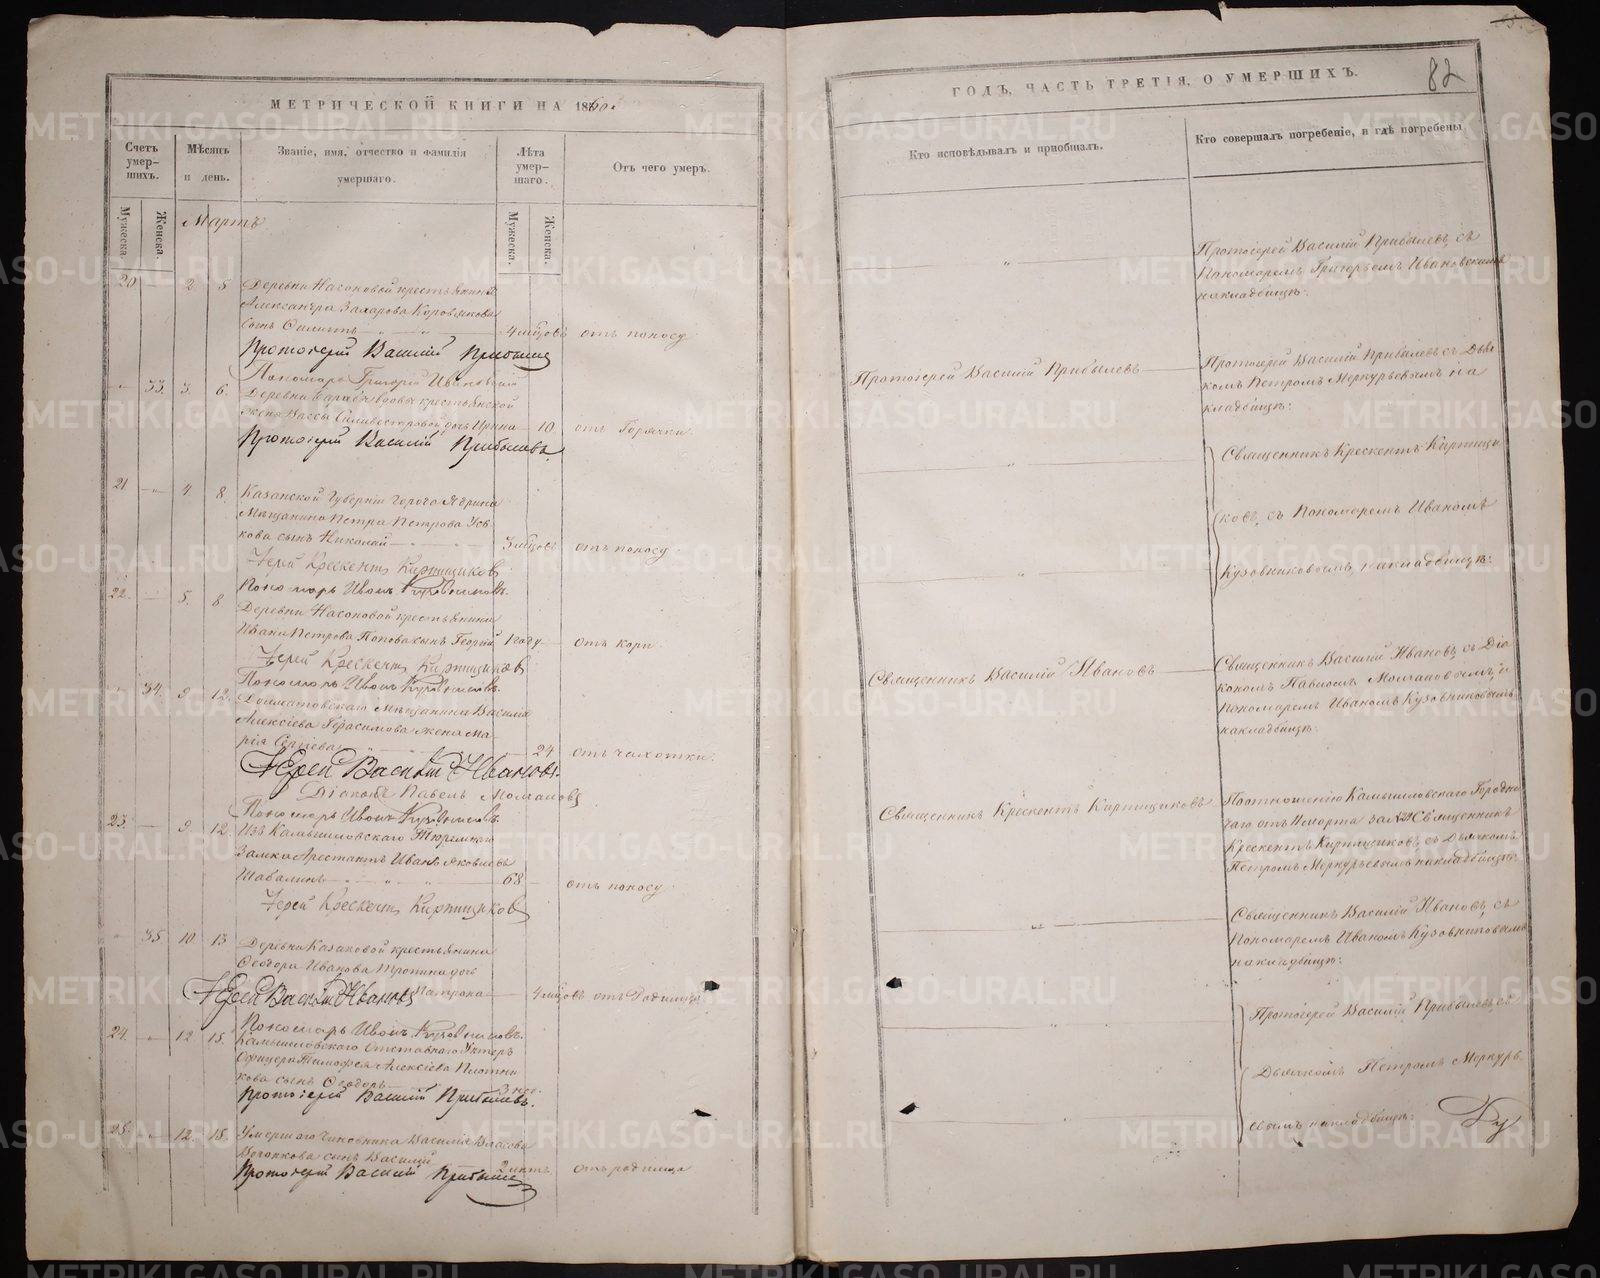 МЕТРИЧЕСКОЙ КНИГИ НА 1860.
Счетъ умер-шихъ.
Мѣсяцъ и день.
Званіе, имя, отчество и фамилія умершаго.
Лѣта умер-шаго.
Отъ чего умеръ.
Мужеска.
Женска.
Мужеска.
Женска.
Мартъ
20 2 5 Деревни Насоновой крестьянина
Александра Захарова Коровякова
сынъ 4 мѣсцовъ отъ поносу
Протоіерей Василій Прибылевъ
Пономарь Григорій Ивановскій
33. 3 6. Деревни вдовы крестьянской
жены Вассы Силивестровой дочь Ирина 10 отъ Горячки
Протоіерей Василій Прибылевъ.
21 4 8. Казанской Губерніи города Ядрина
Мѣщанина Петра Петрова
кова сынъ Николай 3 мѣсцовъ отъ поносу
Іерей Крескентъ Кирпищиковъ
Пономарь Иванъ Кузовниковъ.
22. 5. 8 Деревни Насоновой крестьянина
Ивана Петрова Попова сынъ Георгій 1 году отъ кори
Іерей Крескентъ Кирпищиковъ
Пономарь Иванъ Кузовниковъ.
34. 9 12. Долматовскаго Мѣщанина Василія
Алексіева Герасимова жена Ма-
рія Сергіева 24 отъ чахотки.
Іерей Василій Ивановъ.
Діаконъ Павелъ Молчановъ
Пономарь Иванъ Кузовниковъ.
23. 9 12. Изъ Камышловскаго Тюремнаго
Замка Арестантъ Иванъ Яковлевъ
Шавалинъ 68 отъ поносу.
Іерей Крескентъ Кирпищиковъ
35 10 13 Деревни Казаковой крестьянина
Ѳеодора Иванова Тропина дочь
Матрона 4 мѣсцовъ отъ Родимца
Іерей Василій Ивановъ
Пономарь Иванъ Кузовниковъ.
24. 12 15. Камышловскаго Отставнаго Унтеръ
Офицера Тимофея Алексіева Плотни
кова сынъ Ѳеодоръ 3 нед.
Протоіерей Василій Прибылевъ.
25. 12. 15. Умершаго Чиновника Василія Власова
сынъ Василій 2 лѣтъ отъ родимца
Протоіерей Василій Прибылевъ
ГОДЪ, ЧАСТЬ ТРЕТІЯ, О УМЕРШИХЪ.
82
Кто исповѣдывалъ и пріобщалъ.
Кто совершалъ погребеніе, и гдѣ погребены
Протоіерей Василій Прибылевъ, съ
Пономаремъ Григорьемъ Ивановскимъ
на кладбищѣ.
Протоіерей Василій Прибылевъ
Протоіерей Василій Прибылевъ съ Дьяч
комъ Петромъ Меркурьевымъ на
кладбищѣ:
Священникъ Крескентъ Кирпищи
ковъ, съ Пономаремъ Иваномъ
Кузовниковымъ, на кладбищѣ:
Священникъ Василій Ивановъ
Священникъ Василій Ивановъ, съ Діа
кономъ Павломъ Молчановымъ, и
Пономаремъ Иваномъ Кузовниковымъ
на кладбищѣ:
Священникъ Крескентъ Кирпищиковъ
По отношенію Камышловскаго Городни
чаго отъ Марта за № Священникъ
Крескентъ Кирпищиковъ, съ Дьячкомъ
Петромъ Меркурьевымъ на кладбищѣ:
Священникъ Василій Ивановъ, съ
Пономаремъ Иваномъ Кузовниковымъ
на кладбищѣ:
Протоіерей Василій Прибылевъ, съ
Дьячкомъ Петромъ Меркурь
евымъ на кладбищѣ:
METRIKI.GASO-URAL.RU